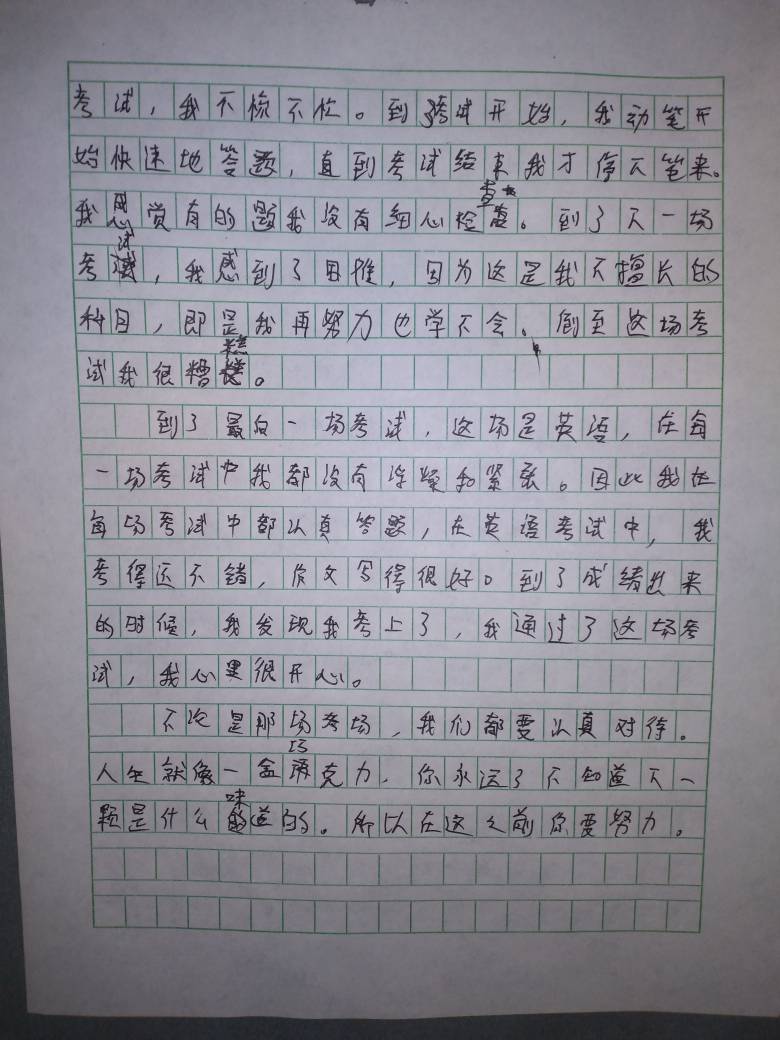 考试，我不慌不忙。到考试开始，我动笔开
始快速地答题，直到考试结束我才停下笔来。
我感觉有的题我没有细心检查。到了下一场
考试，我感到了困难，因为这是我不擅长的
科目，即是我再努力也学不会、倒至这场考
试我很糟糕。
到了最后一场考试，这场是英语，在每
一场考试中我都没有浮燥和紧张。因此我在
每场考试中都认真答题，在英语考试中，我
考得还不错，作文写得很好。到了成绩出来
的时候，我发现我考上了，我通过了这场考
试，我心里很开心。
不论是那场考场，我们都要认真对待。
人生就像一盒巧克力，你永远了不知道下一
颗是什么味道的。所以在这之前你要努力。